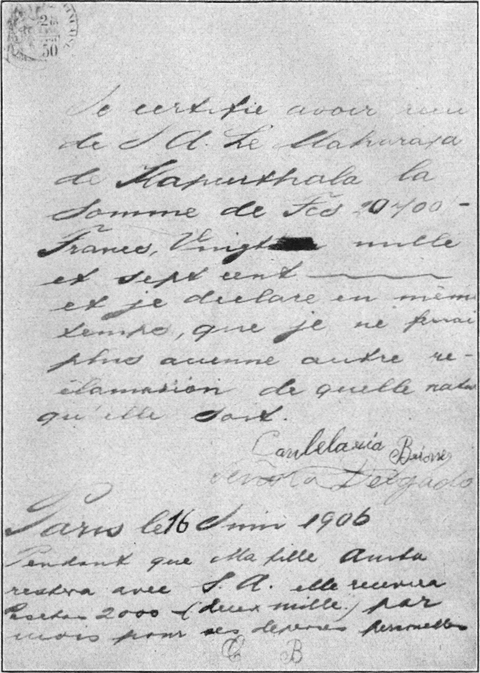 Je certifie avoir recu
de S A. Le Maharaja
de Kapurthala la
Somme de Fcs 20700 -
Francs, Vingt mille
et sept cent
et je declare en même
temps, que je ne ferai
plus aucune autre re-
clamasión de quelle natu
qu'elle soit.
Candelaria Briones
Señora Delgado
Paris le 16 Juin 1906
Pendant que Ma fille Anita
restera avec S. A. elle recevra
Pesetas 2000 - (deux mille) par
mois pour ses depenses personnelles
C B